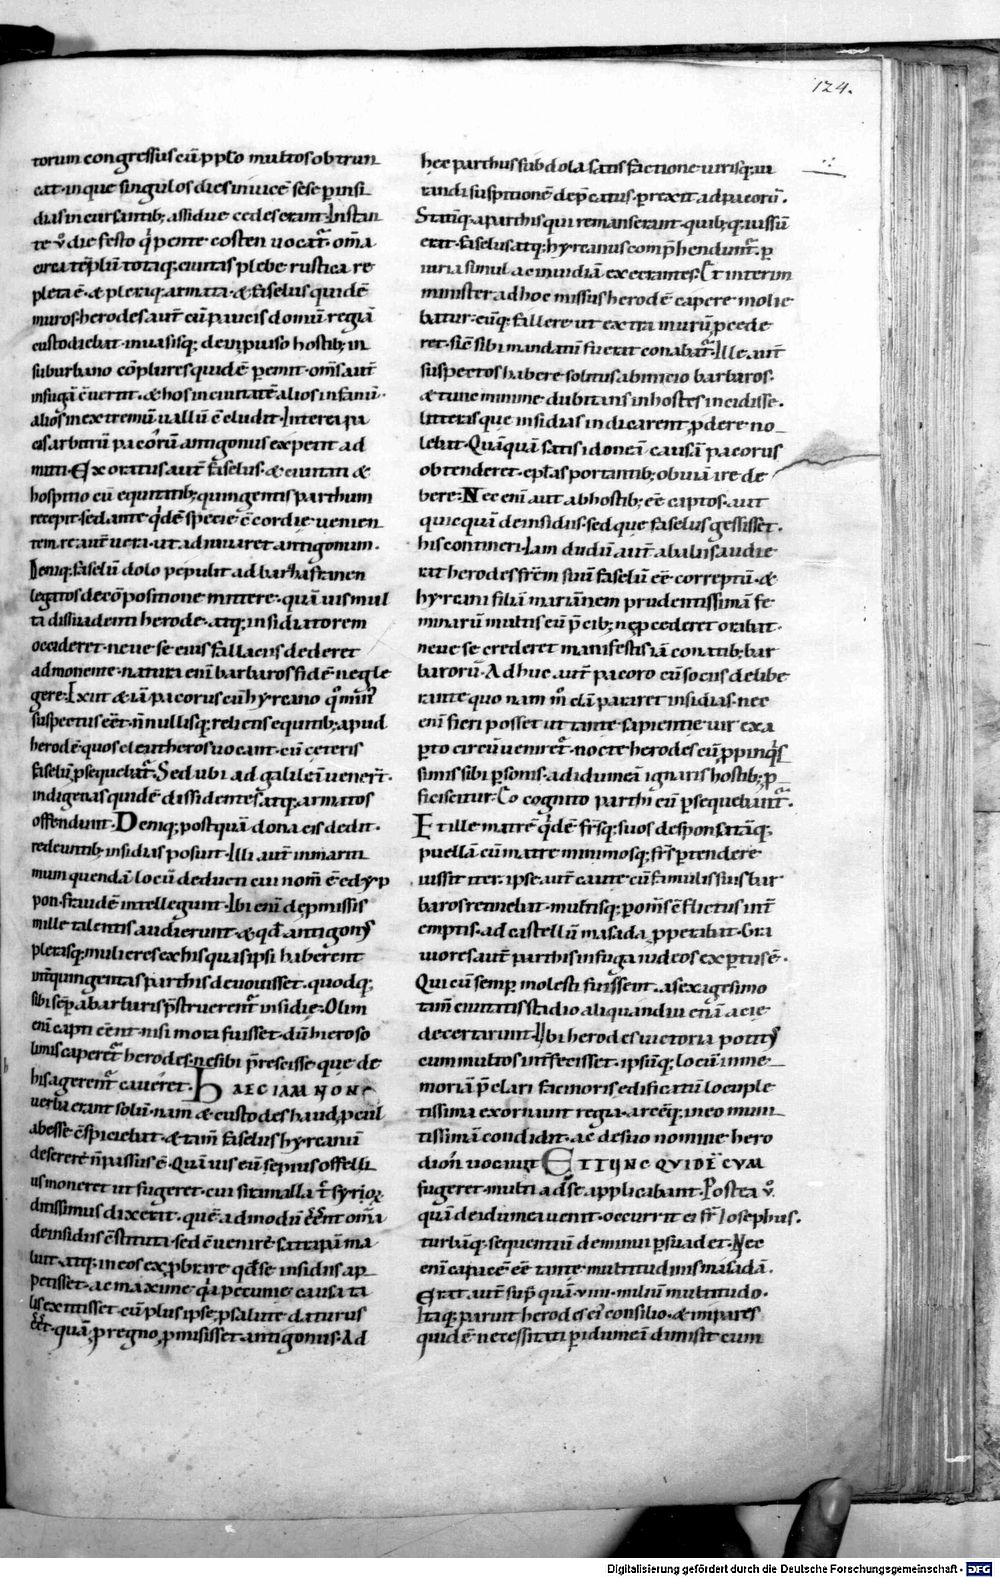 124.
torum congressus cū pplo multos obtrun
cat· inque singulos dies inuicē sese p insi
dias incursantib; assidue cedes erant· Instan
te v̊ die festo q̇ pentecosten uocat̄· om̄a
circa tēplū totaq; ciuitas plebe rustica re
pleta ē· & pleriq; armata· & faselus quidē
muros· herodes aut̄ cū paucis domū regiā
custodiebat· inuasisq; deinprouiso hostib; in
suburbano cōplures quidē pemit· om̄s aut̄
infugā cūertit· & hos in ciuitatē alios in fanū·
alios in extremū uallū cēludit· Interea pa
cis arbitrū pacorū antigonus expetit ad
mitti· Exoratus aut̄ faselus· & ciuitati &
hospitio cū equitatib; quingentis parthum
recepit· sed ante q̇dē specie cēcordie uenien
tem· re aut̄ uera· ut adiuuaret antigonum·
Deniq; faselū dolo pepulit ad barhaffanen
legatos de cōpositione mittere· quāuis mul
ta dissuadenti herode· atq; insidiatorem
occideret· neue se eius fallaciis dederet
admonente· natura enī barbaros fidē negle
gere· Exiit & iā pacorus cū hyrcano q̊ min̄
suspectus eēt· n̄nullisq; relictis equitib; apud
herodē· quos eleutheros uocant· cū ceteris
faselū psequebat̄· Sed ubi ad galileā uener̄t·
indigenas quidē dissidentes atq; armatos
offendunt· Deniq; postquā dona eis dedit·
redeuntib; insidias posuit· Illi aut̄ inmariti
mum quendā locū deducti cui nom̄ ē ecdyp
pon· fraudē intellegunt· Ibi enī de pmissis
mille talentis audierunt· & qd̄ antigon9
plerasq; mulieres ex his quas ipsi haberent
int̄ quingentas parthis deuouisset· quodq;
sibi sēp a barbaris p̄struerent̄ insidie· Olim
enī capti eēnt· nisi mora fuisset· dū hieroso
limis caperet̄ herodes· ne sibi p̄rescisse que de
his agerent̄ caueret· HAEC IAM NON S
uerba erant solū· nam & custodes haud pcul
abesse cēspiciebat· & tam̄ faselus hyrcanū
deserere n̄ passus ē· Quāuis eū sepius offelli
us moneret ut fugeret· cui sitmalla t̄ syrior
ditissimus dixerat· quē admodū eēnt om̄a
de insidiis cēstituta· sed cēuenirē satrapā ma
luit· atq; in eos exprobrare qd̄ se insidiis ap
petisset· ac maxime q̇a pecunie causa ta
lis extitisset· cū plus ipse p salute daturus
eēt· quā p regno pmisisset antigonus· Ad
hec parthus subdola satisfactione uirisq; iu
randi suspitionē dep̄catus· prexit ad pacorū·
Statīq; a parthis qui remanserant· quib; q; iussū
erat· faselus atq; hyrcanus comp̄hendunt̄· p
iuria simul ac inuidiā execrantes· Et interim
minister ad hoc missus herodē capere molie
batur· eūq; fallere ut extra murū pcede
ret· sic sibi mandatū fuerat conabat̄· Ille aut̄
suspectos habere solitus ab inicio barbaros·
& tunc minime dubitans in hostes incidisse·
litteras que insidias indicarent· pdere no
lebat· Quāquā satis idoneā causā pacorus
obtenderet· ep̄las portantib; obuiā ire de
bere· Nec enī aut ab hostib; eē captos· aut
quicquā de insidiis· sed que faselus gessisset·
his contineri· Iam dudū aut̄ ab aliis audie
rat herodes fr̄em suū faselū eē correptū· &
hyrcani filiā mariānem prudentissimā fe
minarū multis cū p̄cib; ne pcederet orabat·
neue se crederet manifestis iā conatib; bar
barorū· Adhuc aut̄ pacoro cū sociis delibe
rante quo nam m̊ clā pararet insidias· nec
enī fieri posset ut tante sapientie uir ex a
pto circūueniret̄· nocte herodes cū ppinq̇s
simis sibi psonis· ad idumeā ignaris hostib; p
ficiscitur· Eo cognito parthi eū psequebant̄·
Et ille matrē q̇dē fr̄sq; suos desponsatāq;
puellā cū matre minimosq; fr̄s ptendere
iussit iter· ipse aut̄ caute cū famulis suis bar
baros retinebat· multisq; p om̄s cēflictus int̄
emptis· ad castellū masada pperabat· Gra
uiores aut̄ parthis infuga iudeos exptus ē·
Qui cū semp molesti fuissent· a sexagesimo
tam̄ ciuitatis stadio aliquandiu etiā acie
decertarunt· Ubi herodes uictoria potit9
cum multos int̄fecisset· ipsūq; locū in me
moriā p̄clari facinoris edificatū locuple
tissima exornauit regia· arcēq; in eo muni
tissimā condidit· ac de suo nomine hero
diōn uocauit ET TUNC QVIDĒ CVM
fugeret· multi ad se applicabant· Postea v̊
quā de idumea uenit· occurrit ei fr̄ Iosephus·
turbāq; sequentiū deminui psuadet· Nec
enī capacē eē tante multitudinis masadā·
Erat aut̄ sup̄ quā viiii· miliū multitudo·
Itaq; paruit herodes ei consilio· & impares
quidē necessitati p idumeā dimisit cum
Digitalisierung gefördert durch die Deutsche Forschungsgemeinschaft - DFG